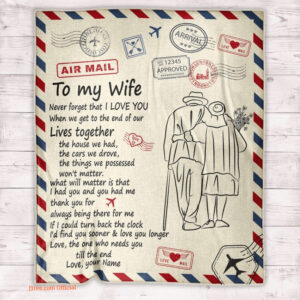 ARRIVAL
LOVE MAIL
AIR MAIL
12345
APPROVED
To my Wife
Never forget that I LOVE YOU
When we get to the end of our
Lives together
the house we had,
the cars we drove,
the things we possessed
won't matter.
what will matter is that
I had you and you had me
thank you for
always being there for me
If I could turn back the clock
I'd find you sooner & love you longer
Love, the one who needs you
till the end
Love, your Name
LOVE MAIL